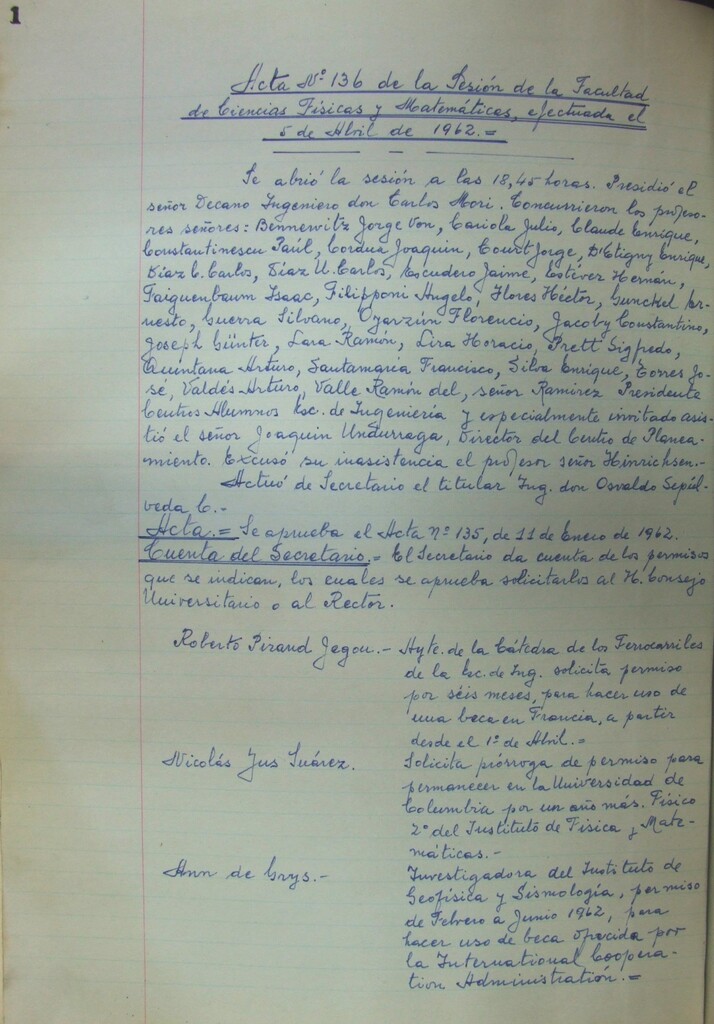 1
Acta Nº 136 de la Sesión de la Facultad
de Ciencias Físicas y Matemáticas, efectuada el
5 de Abril de 1962.=
Se abrió la sesión a las 18,45 horas. Presidió el
señor Decano Ingeniero don Carlos Mori. Concurrieron los profeso-
res señores: Bennewitz Jorge Von, Cariola Julio, Claude Enrique,
Constantinescu Paúl, Cordua Joaquin, Court Jorge, D'Etigny Enrique,
Díaz C. Carlos, Díaz U. Carlos, Escudero Jaime, Estívez Hernán,
Faiguenbaum Isaac, Filipponi Angelo, Flores Héctor, Gunckel Er-
nesto, Guerra Silvano, Oyarzún Florencio, Jacoby Constantino,
Joseph Günter, Lara Ramón, Lira Horacio, Prett Sigfredo,
Quintana Arturo, Santamaría Francisco, Silva Enrique, Torres Jo-
sé, Valdés Arturo, Valle Ramón del, señor Ramirez Presidente
Centros Alumnos Esc. de Ingeniería y especialmente invitado asis-
tió el señor Joaquin Undurraga, Director del Centro de Planea-
miento. Excusó su inasistencia el profesor señor Hinrichsen.-
Actuó de Secretario el titular Ing. don Osvaldo Sepúl-
veda C.-
Acta.= Se aprueba el Acta nº 135, de 11 de Enero de 1962.
Cuenta del Secretario.= El Secretario da cuenta de los permisos
que se indican, los cuales se aprueba solicitarlos al H. Consejo
Universitario o al Rector.
Roberto Pirand Jegou.- Ayte. de la Cátedra de los Ferrocarriles
de la Esc. de Ing. solicita permiso
por séis meses, para hacer uso de
una beca en Francia, a partir
desde el 1º de Abril.=
Nicolás Jus Suárez. Solicita prórroga de permiso para
permanecer en la Universidad de
Columbia por un año más. Físico
2º del Instituto de Física y Mate-
máticas.-
Ann de Grys.- Investigadora del Instituto de
Geofísica y Sismología, permiso
de Febrero a Junio 1962, para
hacer uso de beca ofrecida por
la International Coopera-
tion Administration.=